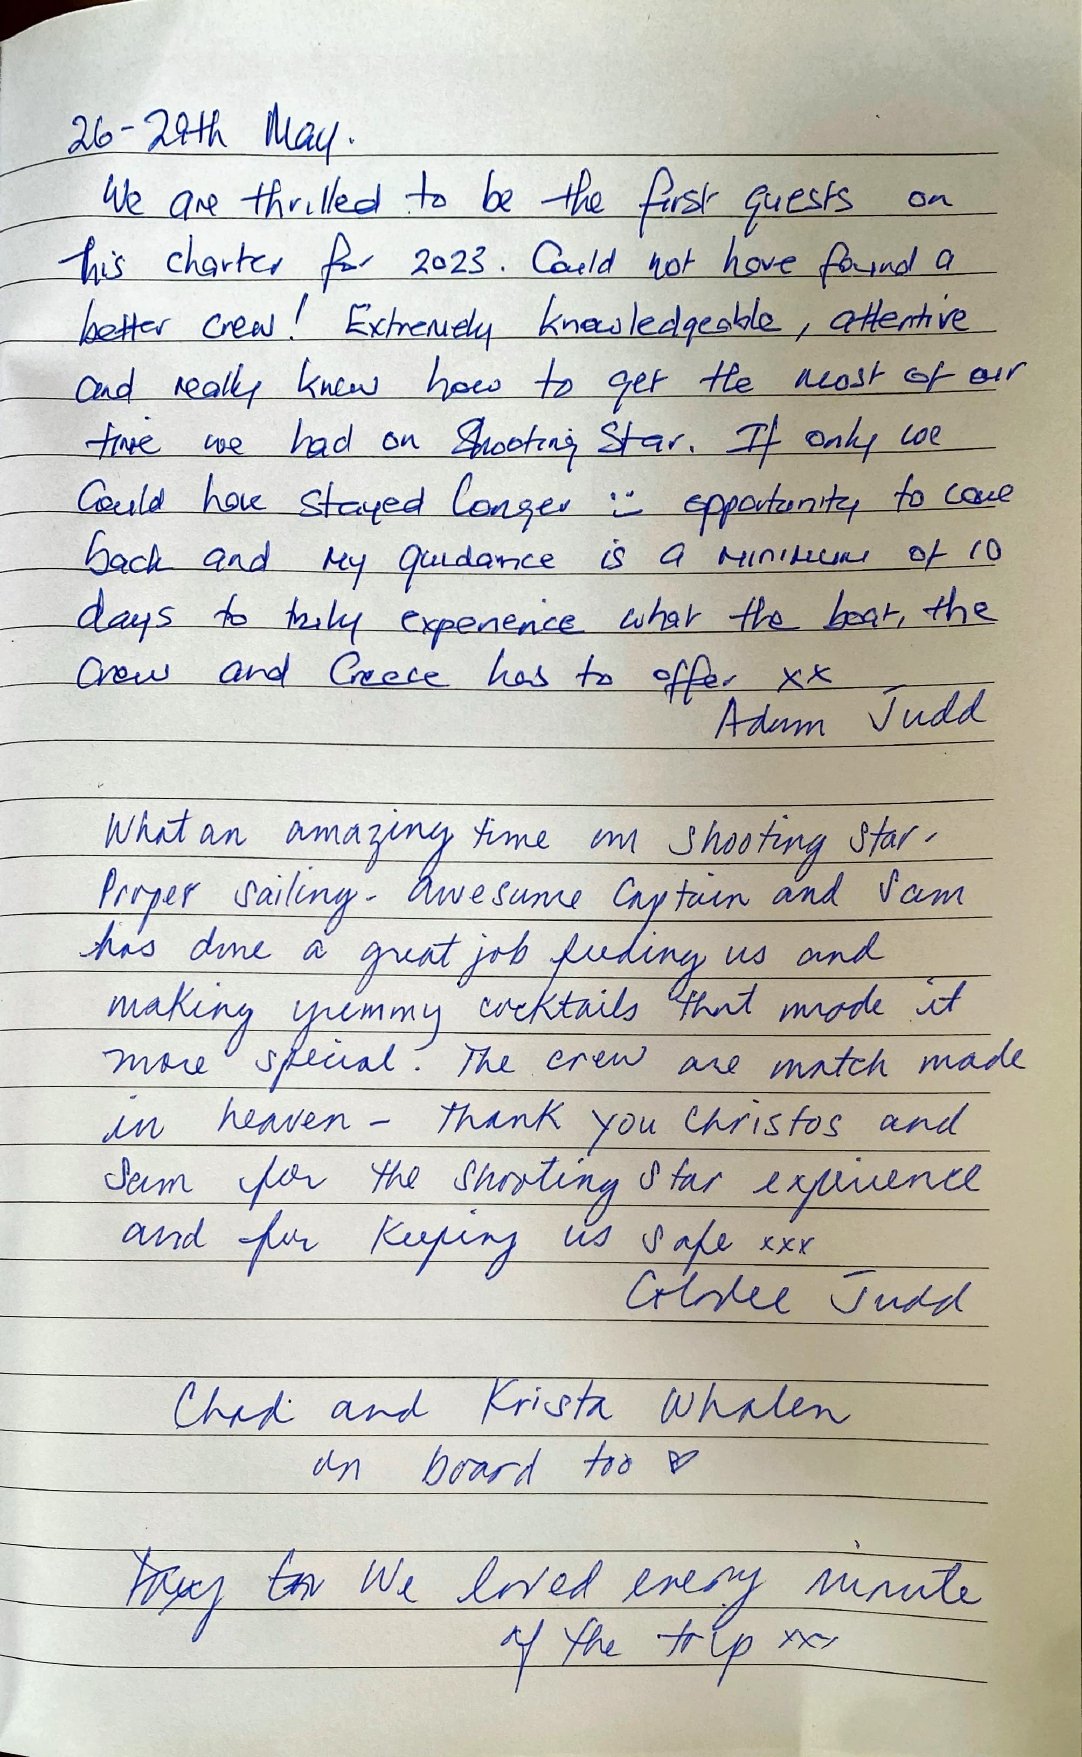 26-29th May.
We are thrilled to be the first guests on
this charter for 2023. Could not have found a
better crew! Extremely knowledgeable, attentive
and really knew how to get the most of our
time we had on Shooting Star. If only we
Could have stayed longer :) opportunity to come
back and my guidance is a minimum of 10
days to truly experience what the boat, the
crew and Greece has to offer xx
Adam Judd
What an amazing time on Shooting Star.
Proper sailing - awesome Captain and Sam
has done a great job feeding us and
making yummy cocktails that made it
more special. The crew are match made
in heaven - Thank you Christos and
Sam for the Shooting Star experience
and for keeping us safe xxx
Judd
Chadi and Krista Whalen
on board too ♡
We loved every minute
of the trip xxx